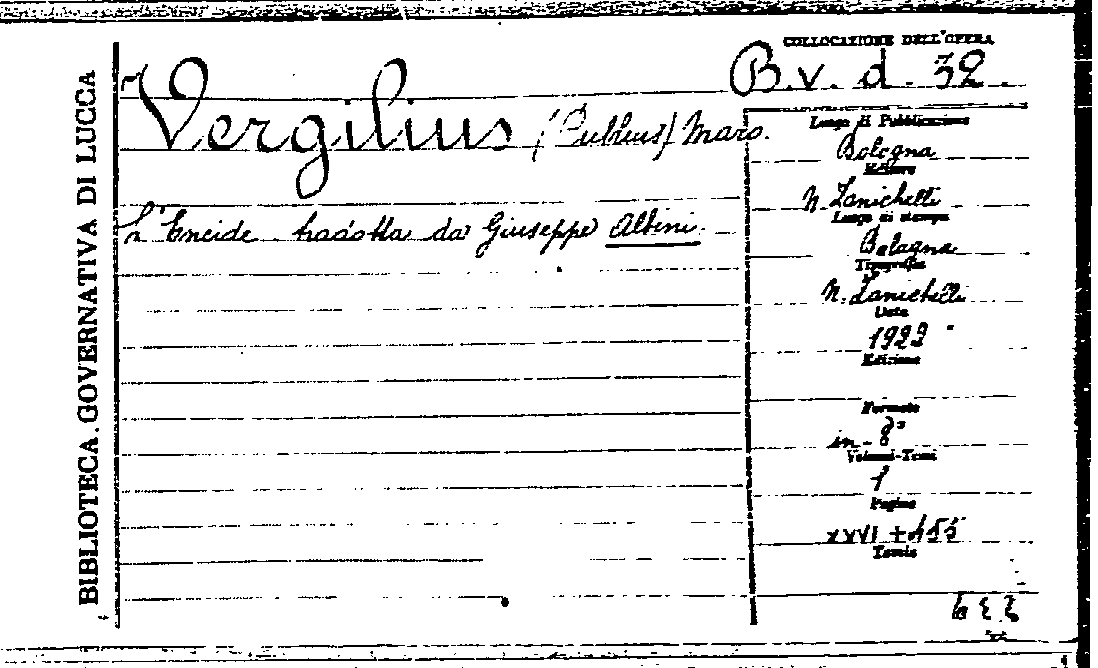 BIBLIOTECA GOVERNATIVA DI LUCCA
COLLOCAZIONE DELL'OPERA
B.v. d. 32.
Vergilius (Publius) Maro.
L'Eneide tradotta da Giuseppe Albini.
Luogo di Pubblicazione
Bologna
Editore
N. Zanichelli
Luogo di stampa
Bologna
Tipografia
N. Zanichelli
Data
1922
Edizione
Formato
in-8°
Volumi-Tomi
1
Pagine
XXVI + 455